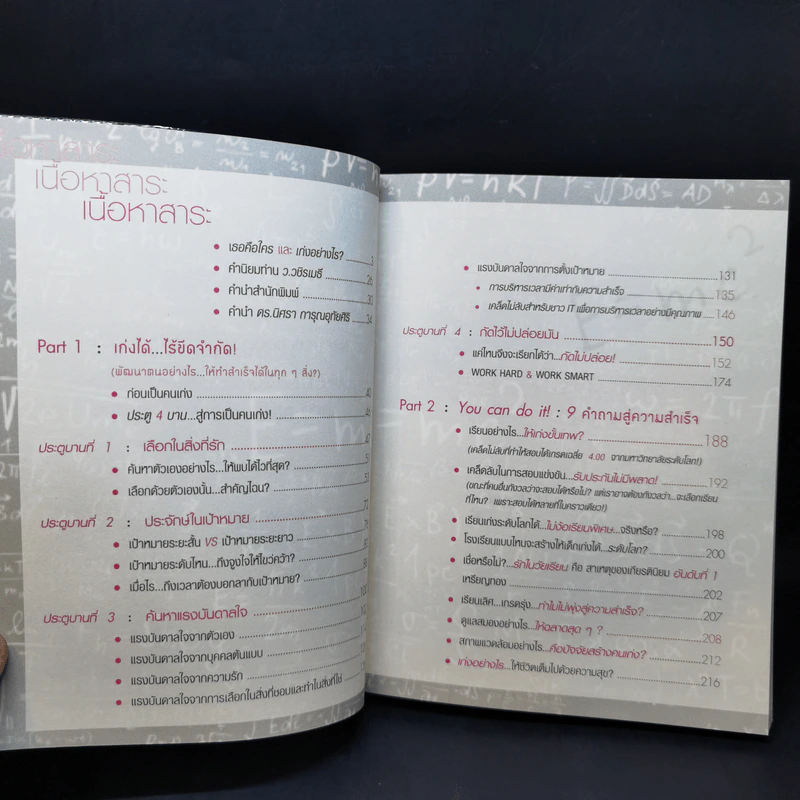 เนื้อหาสาระ
เนื้อหาสาระ
• เธอคือใคร และ เก่งอย่างไร? 3
• คำนิยมท่าน ว.วชิรเมธี 26
• คำนำสำนักพิมพ์ 30
• คำนำ ดร.นิศรา การุณอุทัยศิริ 34
Part 1 : เก่งได้...ไร้ขีดจำกัด!
(พัฒนาตนอย่างไร...ให้ทำสำเร็จได้ในทุก ๆ สิ่ง?)
• ก่อนเป็นคนเก่ง 40
• ประตู 4 บาน...สู่การเป็นคนเก่ง! 46
ประตูบานที่ 1 : เลือกในสิ่งที่รัก 47
• ค้นหาตัวเองอย่างไร...ให้แม่บได้ไวที่สุด? 51
• เลือกด้วยตัวเองนั้น...สำคัญไฉน?
ประตูบานที่ 2 : ประจักษ์ในเป้าหมาย
• เป้าหมายระยะสั้น VS เป้าหมายระยะยาว
• เป้าหมายระดับไหน...ถึงจูงใจให้ไขว่คว้า?
• เมื่อไร...ถึงเวลาต้องบอกลากับเป้าหมาย?
ประตูบานที่ 3 : ค้นหาแรงบันดาลใจ
• แรงบันดาลใจจากตัวเอง
• แรงบันดาลใจจากบุคคลต้นแบบ
• แรงบันดาลใจจากความรัก
• แรงบันดาลใจจากการเลือกในสิ่งที่ชอบและทำในสิ่งที่ใช่
• แรงบันดาลใจจากการตั้งเป้าหมาย 131
• การบริหารเวลามีค่าเท่ากับความสำเร็จ 135
• เคล็ดไม่ลับสำหรับชาว IT เพื่อการบริหารเวลาอย่างมีคุณภาพ 146
ประตูบานที่ 4 : กัดไว้ไม่ปล่อยมัน 150
• แค่ไหนจึงจะเรียกได้ว่า...กัดไม่ปล่อย! 152
• WORK HARD & WORK SMART 174
Part 2 : You can do it! : 9 คำถามสู่ความสำเร็จ
• เรียนอย่างไร...ให้เก่งขั้นเทพ? 188
(เคล็ดไม่ลับที่ทำให้สอบได้เกรดเฉลี่ย 4.00 จากมหาวิทยาลัยระดับโลก!)
• เคล็ดลับในการสอบแข่งขัน...รับประกันไม่มีพลาด! 192
(ขณะที่คนอื่นกังวลว่าจะสอบได้หรือไม่? แต่เราอาจต้องกังวลว่า...จะเลือกเรียน
ที่ไหน? เพราะสอบได้หลายที่ในคราวเดียว!)
• เรียนเก่งระดับโลกได้...ไม่ง้อเรียนพิเศษ...จริงหรือ? 198
• โรงเรียนแบบไหนจะสร้างให้เด็กเก่งได้...ระดับโลก? 200
• เชื่อหรือไม่?...รักในวัยเรียน คือ สาเหตุของเกียรตินิยม อันดับที่ 1
เหรียญทอง 202
• เรียนเลิศ...เกรดรุ่ง...ทำไมไม่พุ่งสู่ความสำเร็จ? 207
• ดูแลสมองอย่างไร...ให้ฉลาดสุด ๆ ? 208
• สภาพแวดล้อมอย่างไร...คือปัจจัยสร้างคนเก่ง? 212
• เก่งอย่างไร...ให้ชีวิตเต็มไปด้วยความสุข? 216